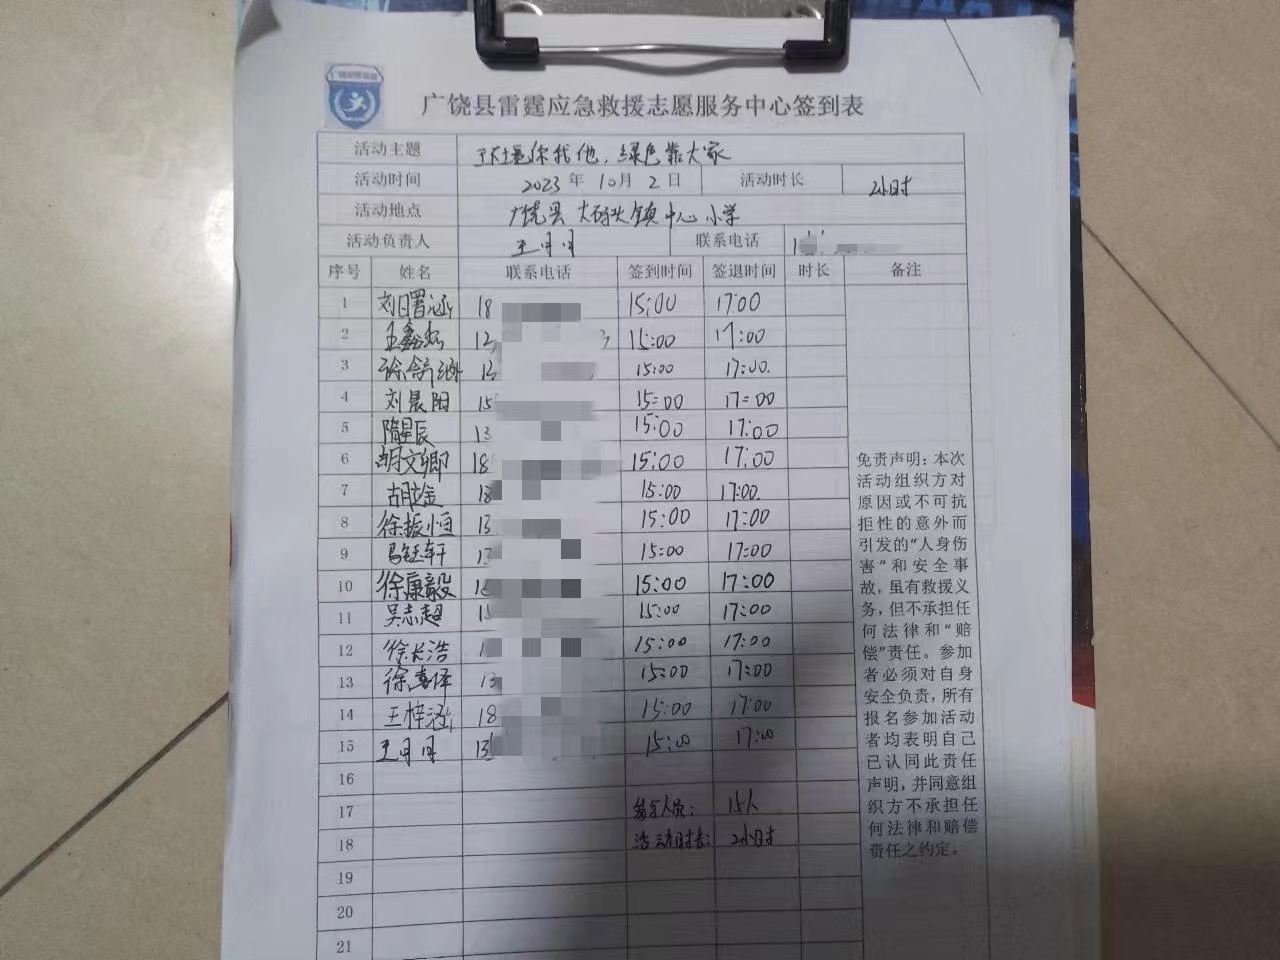 广饶县雷霆应急救援志愿服务中心签到表
活动主题 环境你我他，绿色靠大家
活动时间 2023年10月2日 活动时长 2小时
活动地点 广饶县大码头镇中心小学
活动负责人 王月月 联系电话 1
序号 姓名 联系电话 签到时间 签退时间 时长 备注
1 刘曙涵 18 15:00 17:00
2 王鑫 15:00 17:00
3 徐舒涵 15:00 17:00
4 刘晨阳 15 15:00 17:00
5 隋星辰 13 15:00 17:00
6 胡文卿 18 15:00 17:00
7 18 15:00 17:00
8 徐振恒 13 15:00 17:00
9 马钰轩 15:00 17:00
10 徐康毅 15:00 17:00
11 吴志超 15 15:00 17:00
12 徐长浩 1 15:00 17:00
13 徐嘉泽 13 15:00 17:00
14 王梓涵 18 15:00 17:00
15 王月月 13 15:00 17:00
16
17 签到人数： 15人
18 活动时长： 2小时
19
20
21
免责声明：本次
活动组织方对
原因或不可抗
拒性的意外而
引发的“人身伤
害”和安全事
故，虽有救援义
务，但不承担任
何法律和“赔
偿”责任。参加
者必须对自身
安全负责，所有
报名参加活动
者均表明自己
已认同此责任
声明，并同意组
织方不承担任
何法律和赔偿
责任之约定。